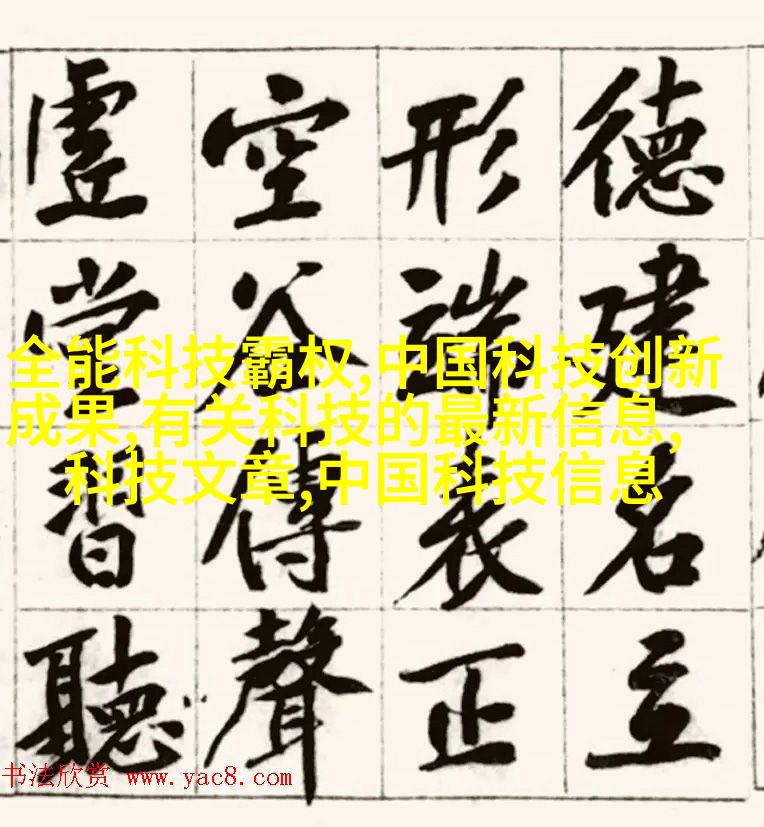 德建名立
形端表正
空谷傳聲
虛堂習聽
全能科技霸权,中国科技创新
成果,有关科技的最新信息,
科技文章,中国科技信息
书法欣赏 www.yac8.com